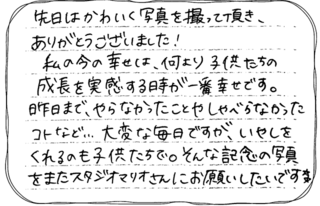 先日はかわいく写真を撮って頂き、
ありがとうございました!
私の今の幸せは、何より子供たちの
成長を実感する時が一番幸せです。
昨日まで、やらなかったことやしゃべらなかった
コトなど…大変な毎日ですが、いやしを
くれるのも子供たちで。そんな記念の写真
をまたスタジオマリオさんにお願いしたいです